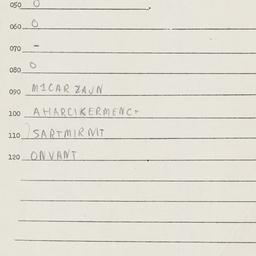 050 0
060 0
070 -
080 0
090 M1CAR ZAUN
100 AHARCIKERMENC+
110 SARTMIRNIT
120 ONVANT